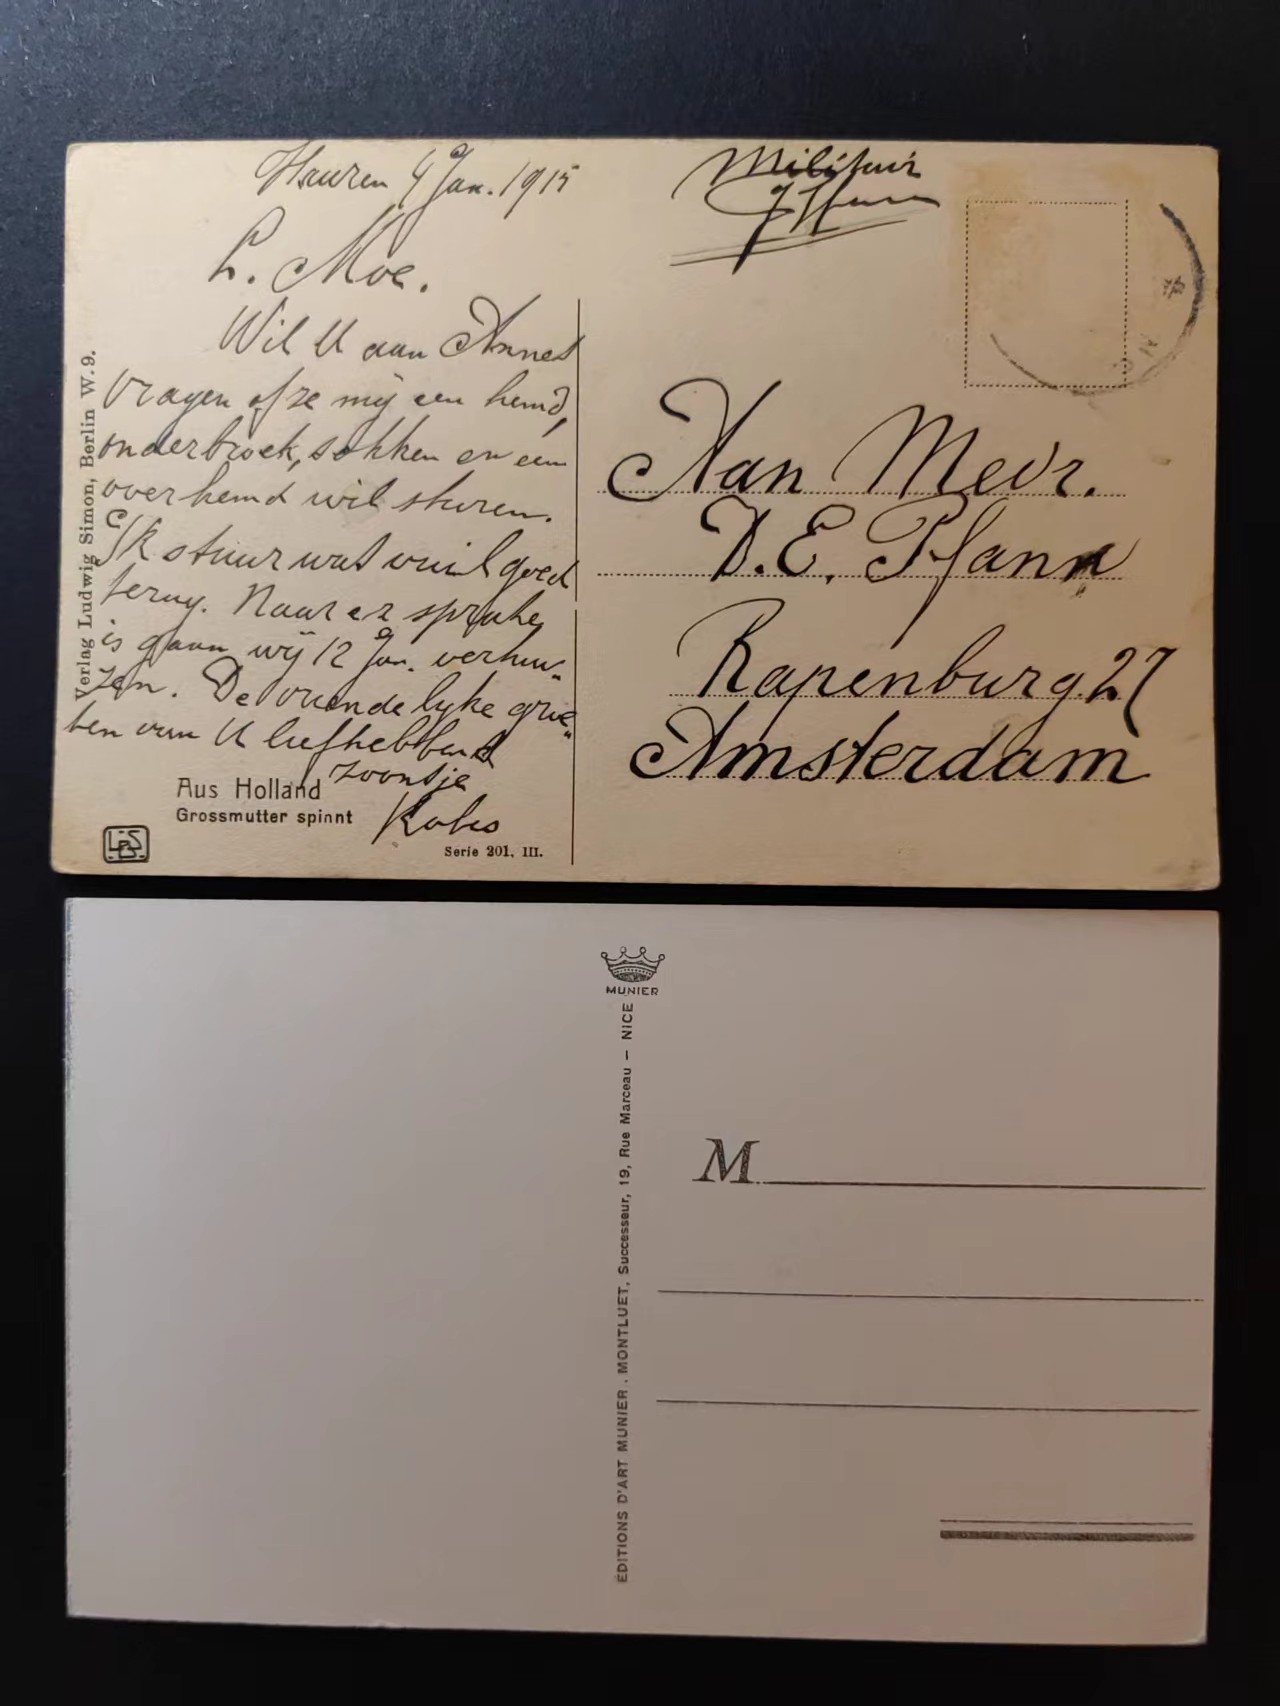 4 Jan. 1915
L. Moe.
Wil U aan Annes
vragen of ze mij een hemd,
onderbroek, sokken en een
overhemd wil sturen.
Ik stuur wat vuil goed
terug. Naar er sprake
is gaan wij 12 Jan. verhui„
zen. De vriendelyke groe„
ten van U liefhebbend
zoontje
Kobes
Verlag Ludwig Simon, Berlin W. 9.
Aus Holland
Grossmutter spinnt
LSB
Serie 201. III.
Militair
Aan Mevr.
D. E. Pfann
Rapenburg 27
Amsterdam
MUNIER
ÉDITIONS D'ART MUNIER. MONTLUET, Successeur, 19, Rue Marceau – NICE
M